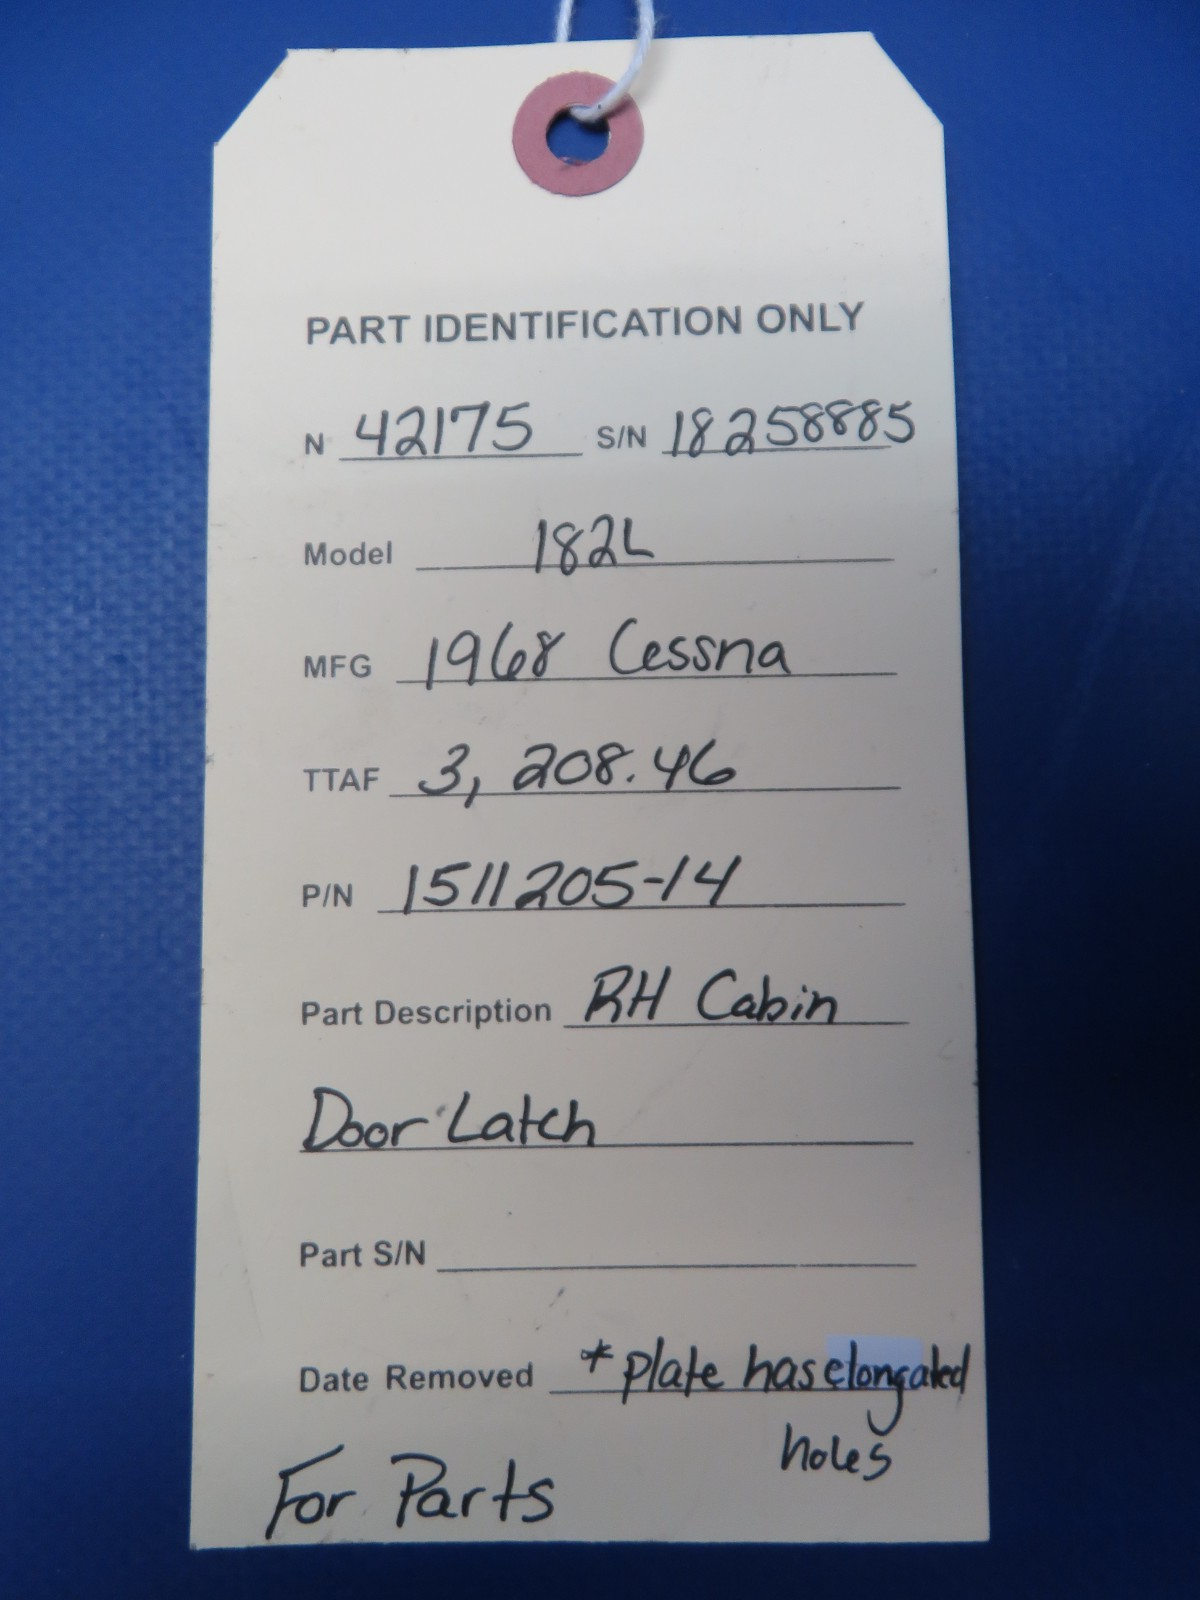 PART IDENTIFICATION ONLY
N 42175 S/N 18258885
Model 182L
MFG 1968 Cessna
TTAF 3,208.46
P/N 1511205-14
Part Description RH Cabin
Door Latch
Part S/N
Date Removed *plate has elongated
holes
For Parts